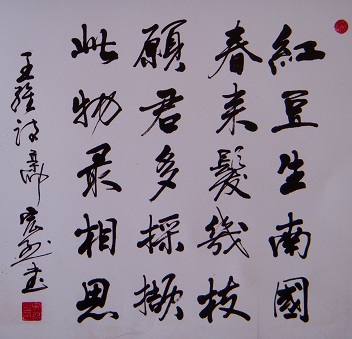 紅豆生南國
春来髮幾枝
願君多採擷
此物最相思
王維詩
書